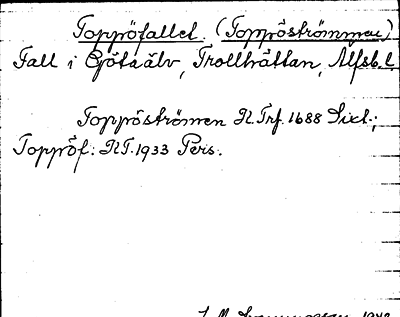 Toppöfallet. (Toppöströmmen)
Fall i Götaälv, Trollhättan, Älfsb. l.
Toppöströmen R.Trf. 1688 Dixl.;
Toppöf: RT. 1933 Pers.